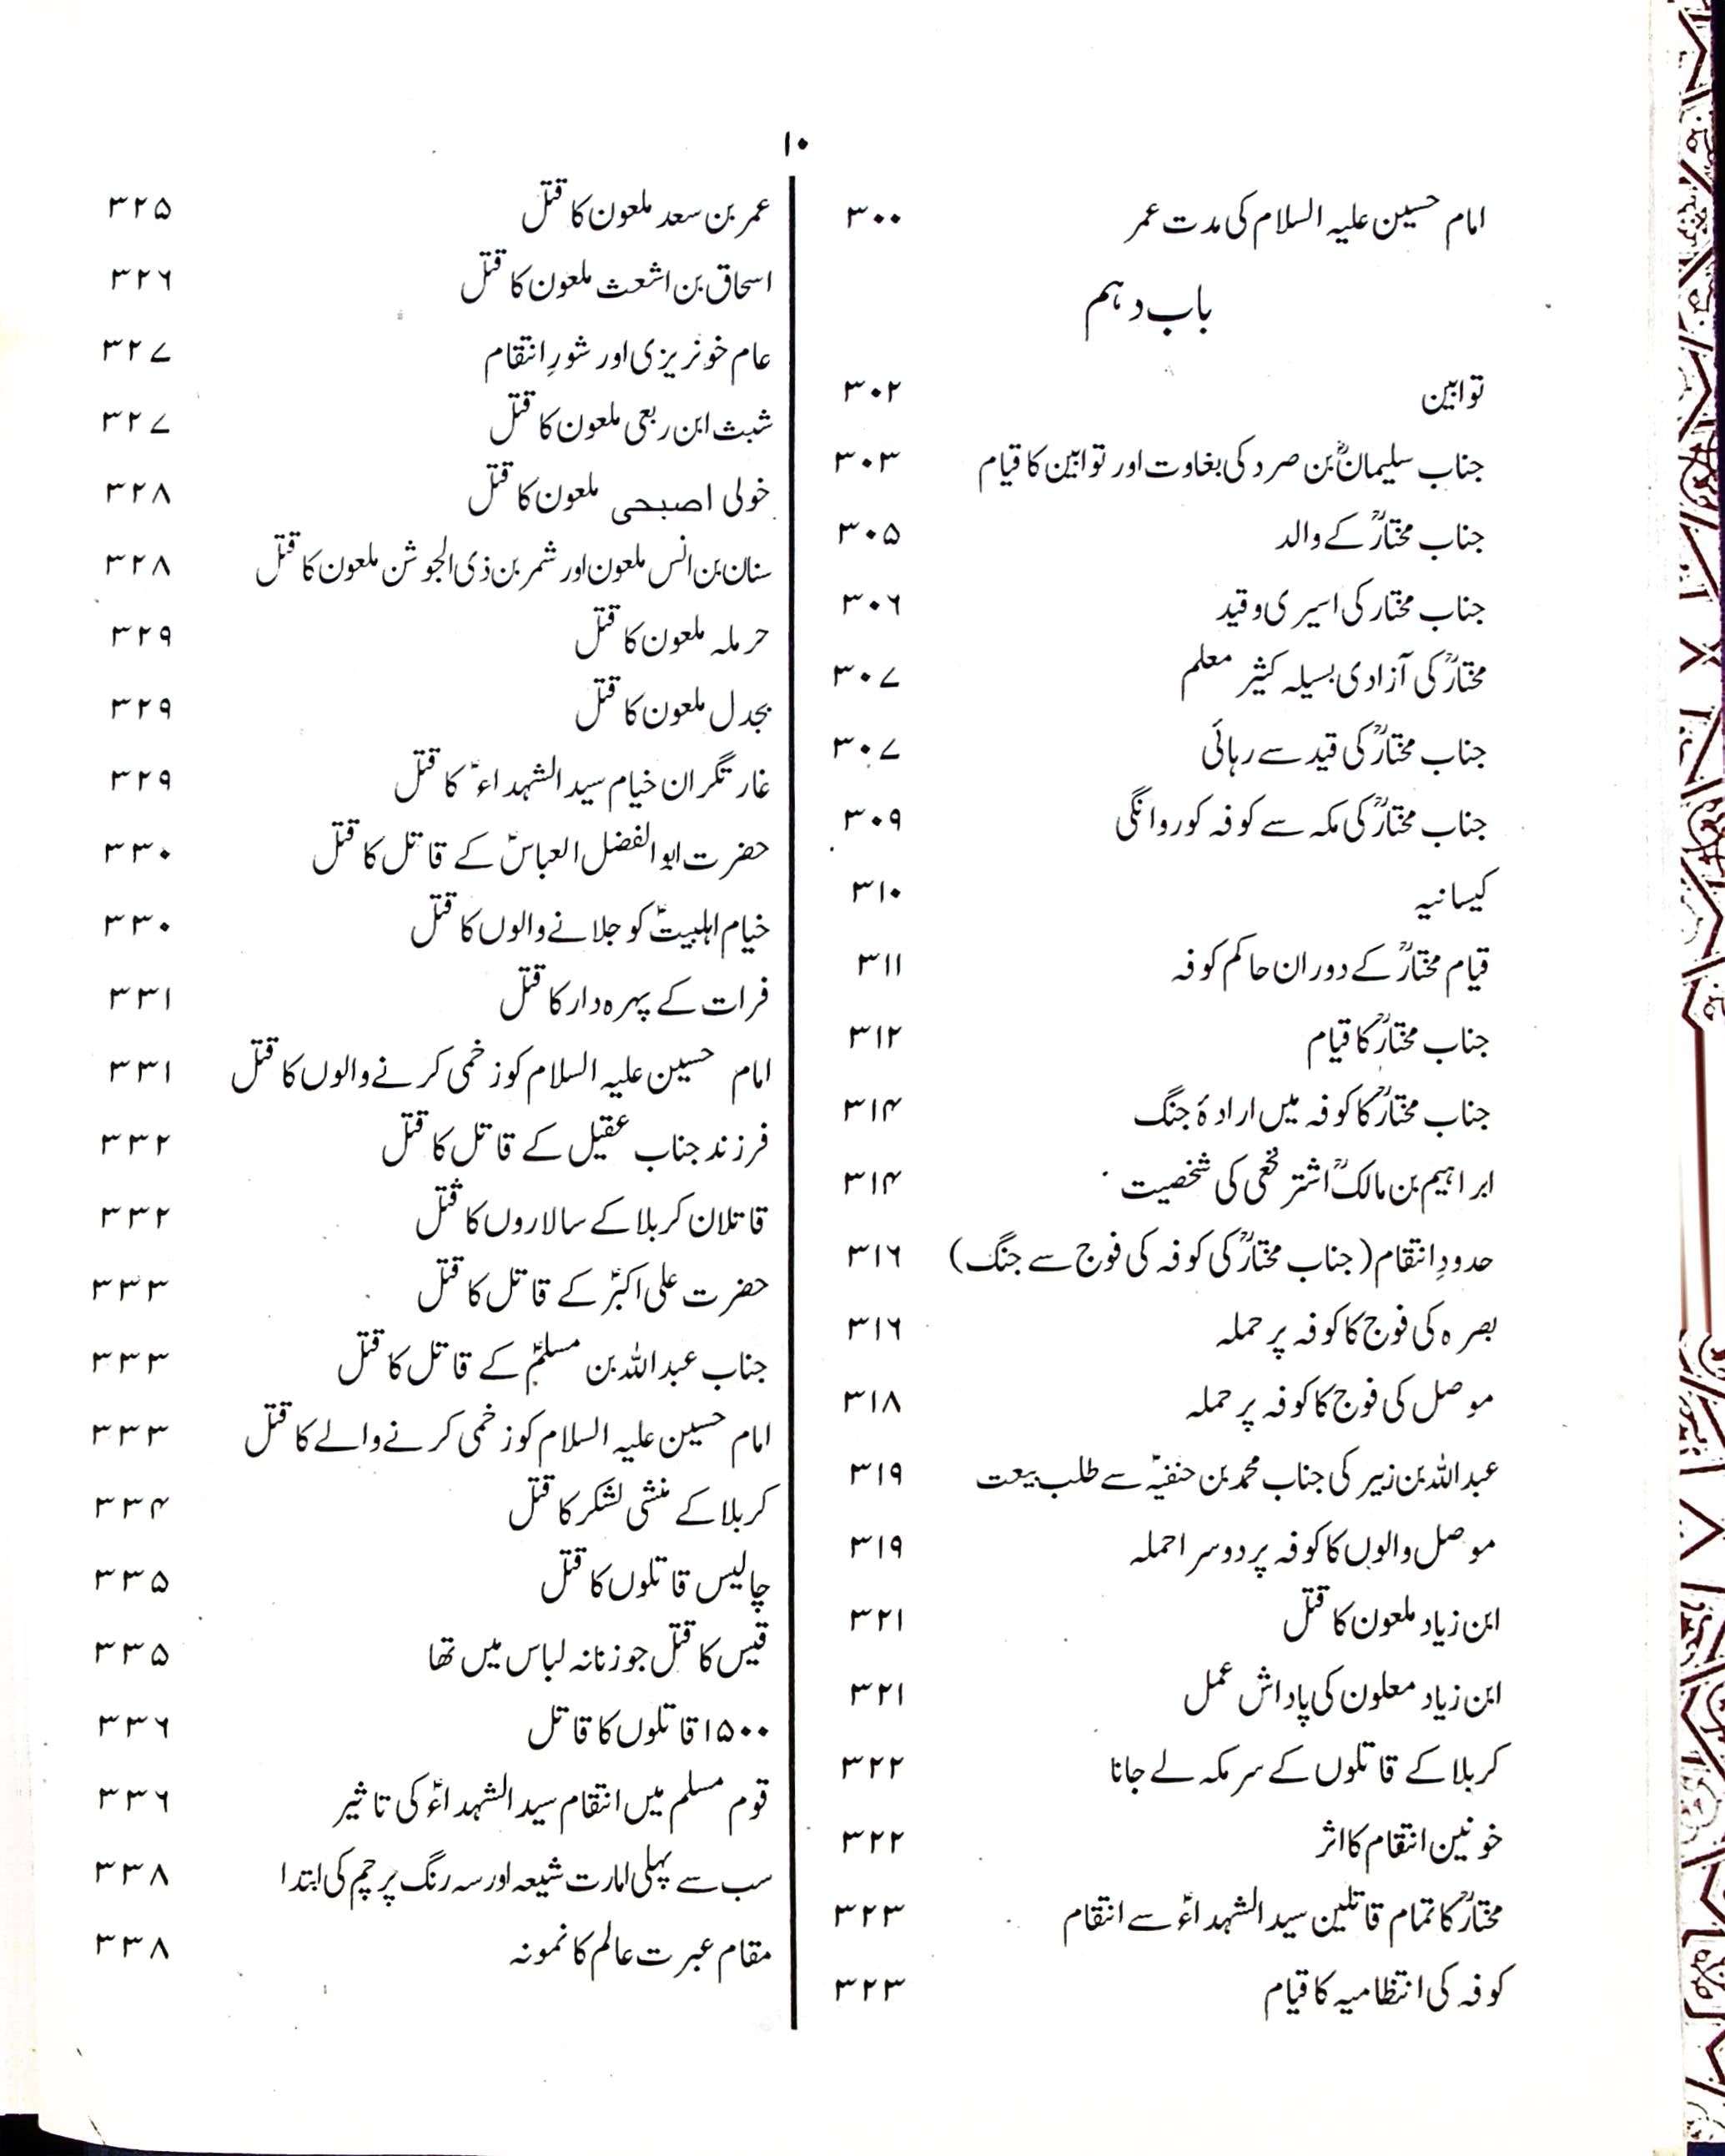 ۱۰
امام حسین علیہ السلام کی مدت عمر ۳۰۰
باب دہم
توابین ۳۰۲
جناب سلیمانؓ بن صرد کی بغاوت اور توابین کا قیام ۳۰۳
جناب مختارؒ کے والد ۳۰۵
جناب مختار کی اسیری و قید ۳۰۶
مختارؒ کی آزادی بسیلہ کثیر معلم ۳۰۷
جناب مختارؒ کی قید سے رہائی ۳۰۷
جناب مختارؒ کی مکہ سے کوفہ کو روانگی ۳۰۹
کیسانیہ ۳۱۰
قیام مختارؒ کے دوران حاکم کوفہ ۳۱۱
جناب مختارؒ کا قیام ۳۱۲
جناب مختارؒ کا کوفہ میں ارادۂ جنگ ۳۱۴
ابراہیم بن مالکؒ اشتر نخعی کی شخصیت ۳۱۴
حدودِ انتقام (جناب مختارؒ کی کوفہ کی فوج سے جنگ) ۳۱۶
بصرہ کی فوج کا کوفہ پر حملہ ۳۱۶
موصل کی فوج کا کوفہ پر حملہ ۳۱۸
عبداللہ بن زبیر کی جناب محمد بن حنفیہؑ سے طلب بیعت ۳۱۹
موصل والوں کا کوفہ پر دوسرا حملہ ۳۱۹
ابن زیاد ملعون کا قتل ۳۲۱
ابن زیاد معلون کی پاداش عمل ۳۲۱
کربلا کے قاتلوں کے سر مکہ لے جانا ۳۲۲
خونین انتقام کا اثر ۳۲۲
مختارؒ کا تمام قاتلین سید الشہداءؑ سے انتقام ۳۲۳
کوفہ کی انتظامیہ کا قیام ۳۲۳
عمر بن سعد ملعون کا قتل ۳۲۵
اسحاق بن اشعث ملعون کا قتل ۳۲۶
عام خونریزی اور شورِ انتقام ۳۲۷
شبث ابن ربعی ملعون کا قتل ۳۲۷
خولی اصبحی ملعون کا قتل ۳۲۸
سنان بن انس ملعون اور شمر بن ذی الجوشن ملعون کا قتل ۳۲۸
حرملہ ملعون کا قتل ۳۲۹
بجدل ملعون کا قتل ۳۲۹
غارتگران خیام سید الشہداءؑ کا قتل ۳۲۹
حضرت ابو الفضل العباسؑ کے قاتل کا قتل ۳۳۰
خیام اہلبیتؑ کو جلانے والوں کا قتل ۳۳۰
فرات کے پہرہ دار کا قتل ۳۳۱
امام حسین علیہ السلام کو زخمی کرنے والوں کا قتل ۳۳۱
فرزند جناب عقیل کے قاتل کا قتل ۳۳۲
قاتلان کربلا کے سالاروں کا قتل ۳۳۲
حضرت علی اکبرؑ کے قاتل کا قتل ۳۳۳
جناب عبداللہ بن مسلمؑ کے قاتل کا قتل ۳۳۳
امام حسین علیہ السلام کو زخمی کرنے والے کا قتل ۳۳۳
کربلا کے منشی لشکر کا قتل ۳۳۴
چالیس قاتلوں کا قتل ۳۳۵
قیس کا قتل جو زنانہ لباس میں تھا ۳۳۵
۱۵۰۰ قاتلوں کا قاتل ۳۳۶
قوم مسلم میں انتقام سید الشہداءؑ کی تاثیر ۳۳۶
سب سے پہلی امارت شیعہ اور سہ رنگ پرچم کی ابتدا ۳۳۸
مقام عبرت عالم کا نمونہ ۳۳۸